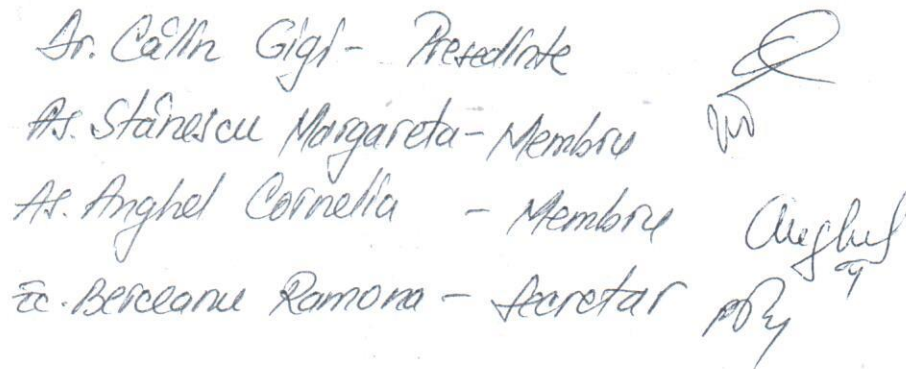 Dr. Călin Gigi - Președinte
As. Stănescu Margareta - Membru
As. Anghel Cornelia - Membru Anghel
Ec. Berceanu Ramona - Secretar